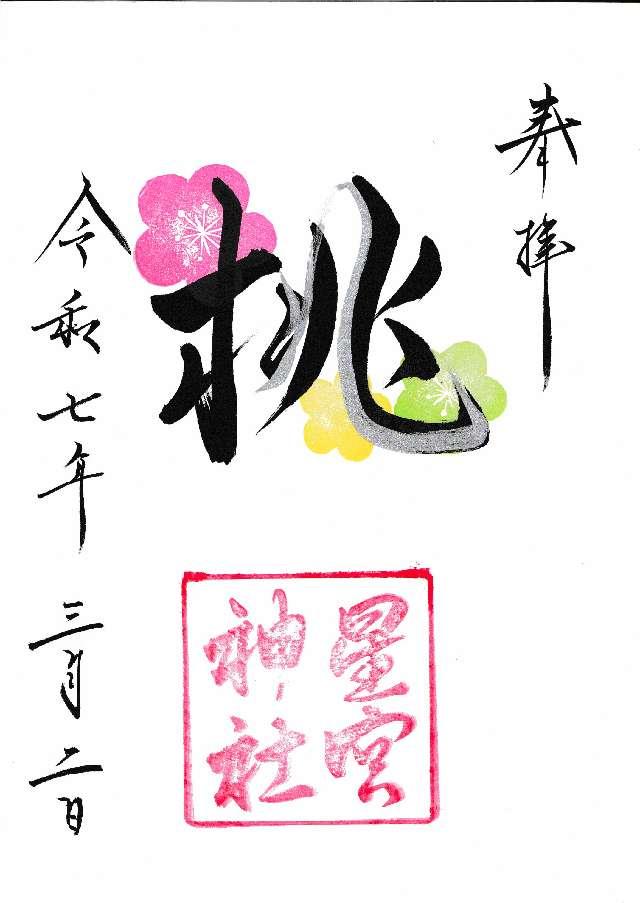 奉拝
桃
星宮
神社
令和七年三月二日